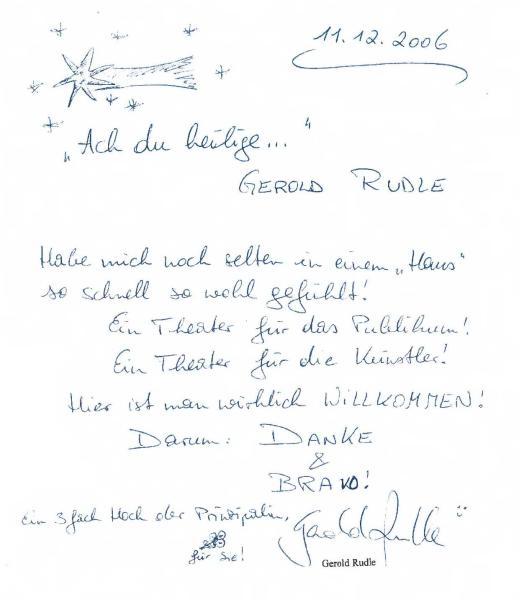 11.12.2006
„Ach du heilige..."
GEROLD RUDLE
Habe mich noch selten in einem „Haus"
so schnell so wohl gefühlt!
Ein Theater für das Publikum!
Ein Theater für die Künstler!
Hier ist man wirklich WILLKOMMEN!
Darum: DANKE
&
BRAVO!
Ein 3fach Hoch der Prinzipalin,
für Sie!
Gerold Rudle
Gerold Rudle